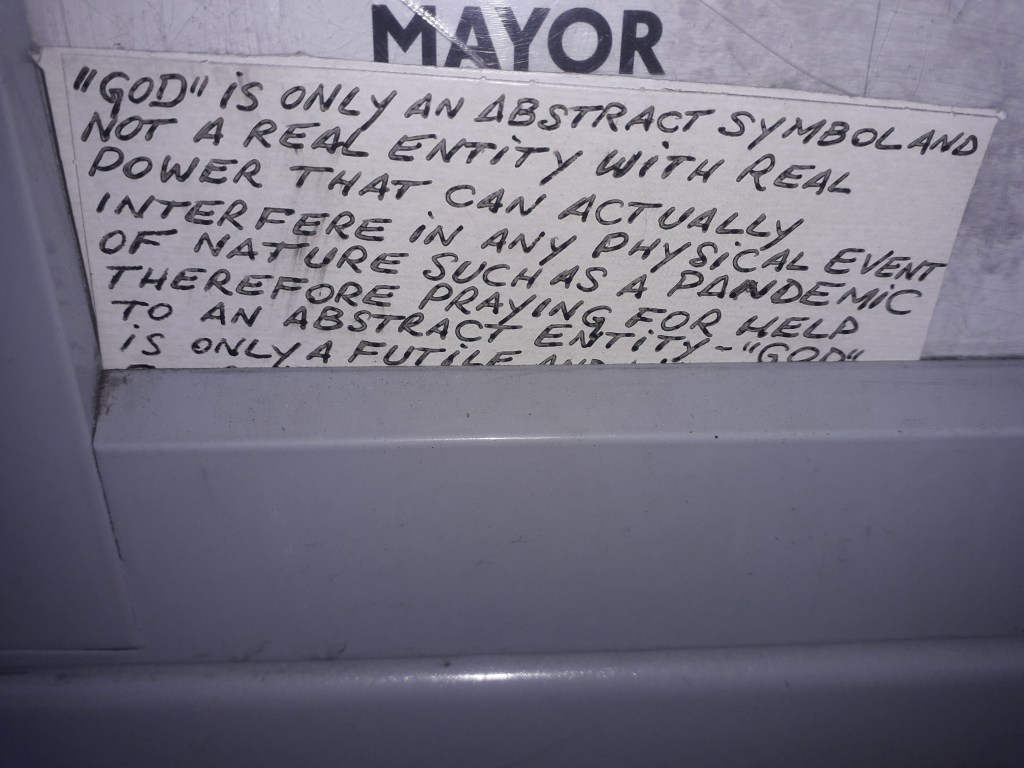 MAYOR
"GOD" iS ONLY AN ABSTRACT SYMBOL AND
NOT A REAL ENTiTY WiTH REAL
POWER THAT CAN ACTUALLY
INTERFERE iN ANY PHYSiCAL EVENT
OF NATURE SUCH AS A PANDEMiC
THEREFORE PRAYING FOR HELP
TO AN ABSTRACT ENTiTY-"GOD"
iS ONLY A FUTiLE AND